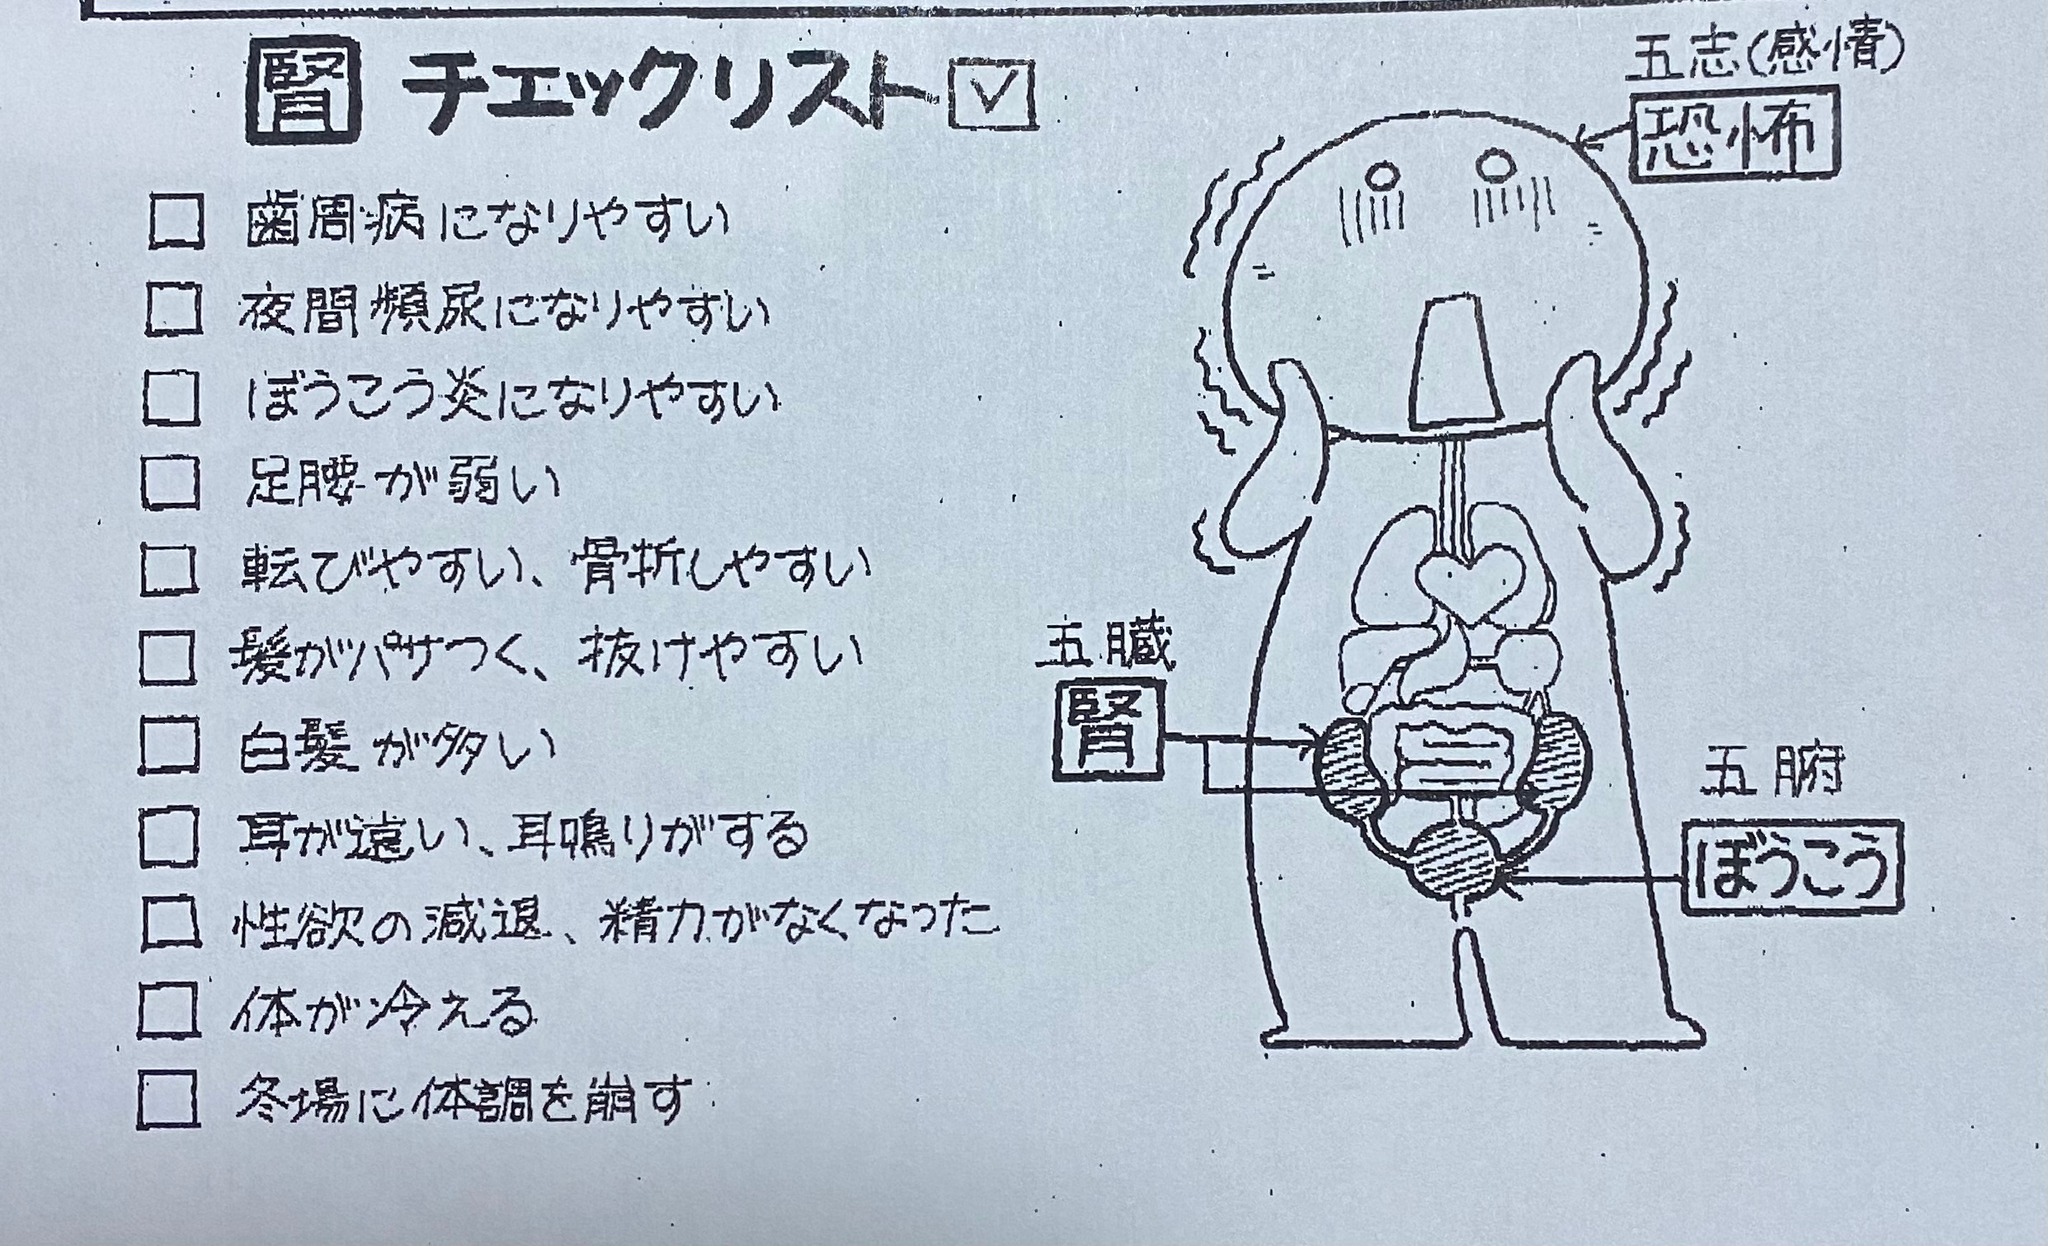 腎 チェックリスト
歯周病になりやすい
夜間頻尿になりやすい
ぼうこう炎になりやすい
足腰が弱い
転びやすい、骨折しやすい
髪がパサつく、抜けやすい
白髪が多い
耳が遠い、耳鳴りがする
性欲の減退、精力がなくなった
体が冷える
冬場に体調を崩す
五志(感情)
恐怖
五臓
腎
五腑
ぼうこう